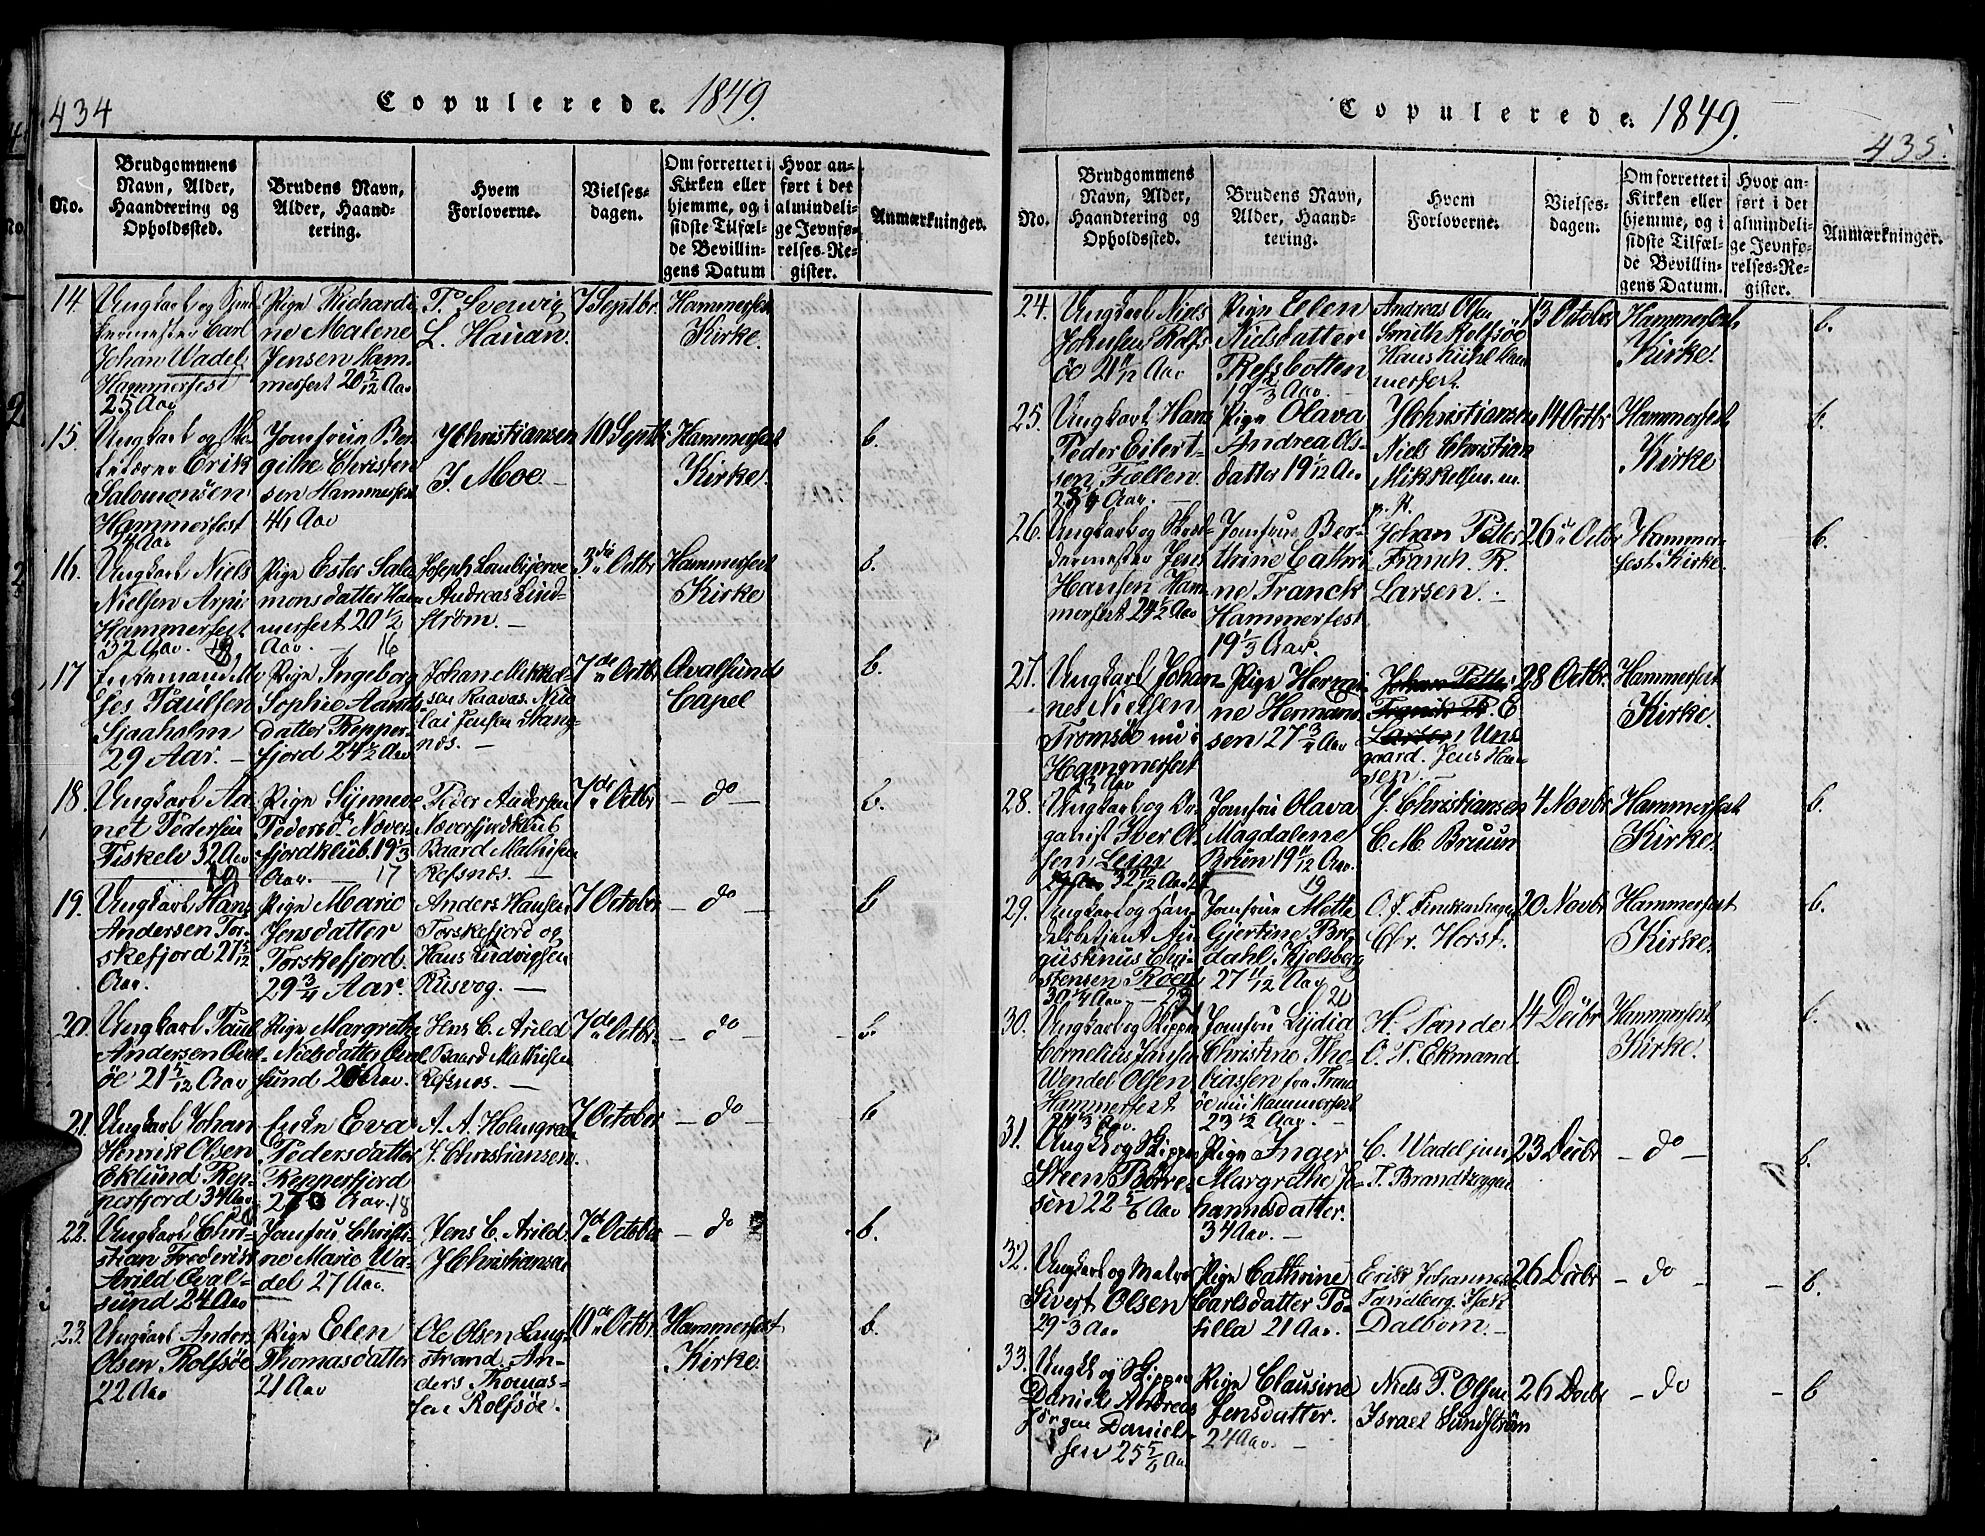 434
Copulerede. 1849.
No.
Brudgommens Navn, Alder, Haandtering og Opholdssted.
Brudens Navn, Alder, Haandtering.
Hvem Forloverne.
Vielsesdagen.
Om forrettet i Kirken eller hjemme, og i sidste Tilfælde Bevillingens Datum
Hvor anført i det almindelige Jevnførelses-Register.
Anmærkninger.
14.
Ungkarl og
Carl
Johan Wadel
Hammerfest
25 Aar
Pige Richardi-
ne Malene
Jensen Ham-
merfest 20 5/12 Aar
P. Sverwig
L. Hauan.
7 Septbr.
Hammerfest
Kirke.
15
Ungkarl og
Erik
Salomonsen
Hammerfest
Aar
Jomfrue Ber-
githe Christen
sen Hammerfest
Aar
J Christiansen
J. Moe.
10 Septbr
Hammerfest
Kirke.
b.
16.
Ungkarl Niels
Nielsen Arpi
Hammerfest
32 Aar.
Pige Ester Salo
monsdatter Ham
merfest 20 1/2
Aar. 16
Joseph
Andreas Lind-
strøm.
3die Octbr
Hammerfest
Kirke
b.
17
Enkemand Mo
ses Paulsen
Sjaaholm
29 Aar.
Pige Ingeborg
Sophie
datter Repper-
fjord 24 1/2 Aar
Johan Mikkel-
sen Nico
lai Jensen Stang-
næs.
7de Octbr
Qvalsunds
Capel
b.
18.
Ungkarl
Pedersen
Fiskelv 32 Aar
Pige Synneve
Pedersd. Never-
fjordklub. 19 1/3
Aar. 17
Peder Andersen
Neverfjordklub
Baard Mathisen
Refsnæs.
7de Octbr
do
b.
19.
Ungkarl Hans
Andersen Tor-
skefjord 21 5/12
Aar.
Pige Marie
Jensdatter
Torskefjord.
29 3/4 Aar.
Anders Hansen
Torskefjord og
Hans Ludvigsen
Rusvog.
7 October
do
b
20.
Ungkarl Paul
Andersen Qval
øe 21 5/12 Aar
Pige Margrethe
Nielsdatter Qval
sund 20 Aar.
Jens C. Arild
Baard Mathisen
Refsnæs.
7de Octbr.
do
b.
21.
Ungkarl Johan
Henrik Olsen
Eklund Rep-
perfjord 34 Aar
Enke Eva
Pedersdatter
Repperfjord
Aar. 18
A. A. Holmgren
J. Christiansen.
7 October
do
b
22.
Ungkarl Chri-
stian Frederik
Arild Qval-
sund 24 Aar
Jomfru Christi-
ne Marie Wa-
del 27 Aar.
Jens C. Arild
J Christiansen
7de October
do
b.
23.
Ungkarl Anders
Olsen Rolfsøe
22 Aar
Pige Elen
Thomasdatter
21 Aar
Ole Olsen Lang-
strand. An-
ders Thomas-
sen Rolfsøe.
10de Octbr.
Hammerfest
Kirke.
b.
Copulerede. 1849.
435.
No.
Brudgommens Navn, Alder, Haandtering og Opholdssted.
Brudens Navn, Alder, Haandtering.
Hvem Forloverne.
Vielsesdagen.
Om forrettet i Kirken eller hjemme, og i sidste Tilfælde Bevillingens Datum.
Hvor anført i det almindelige Jevnførelses-Register.
Anmærkninger.
24.
Ungkarl Niels
Johnsen Rolfs
øe 21 11/12 Aar
Pige Elen
Nielsdatter
Refsbotten
19 2/3 Aar.
Andreas Olsen
Smith Rolfsøe
Hans Kühl Ham
merfest.
13 October
Hammerfest
Kirke.
b.
25.
Ungkarl Hans
Peder Eilert-
sen
Aar.
Pige Olava
Andrea Ols-
datter 19 1/12 Aar
J Christiansen
Niels Christian
Mikkelsen.
14 Octbr
Hammerfest
Kirke
b.
26.
Ungkarl og
Jens
Hansen Ham-
merfest 24 1/2 Aar
Jomfrue Ber-
thine Cathri
ne Franck
Hammerfest
19 1/3 Aar.
Johan Petter
Franck R.
Larsen.
26 Octbr
Hammer-
fest Kirke.
b.
27.
Ungkarl Johan-
nes Nielsen
Tromsöe nu i
Hammerfest
Aar
Pige Hermi-
ne Herman-
sen 27 3/4 Aar
Johan Petter
E
Uns-
gaard. Jens Han-
sen
28 Octbr.
Hammerfest
Kirke.
28.
Ungkarl og Or-
ganist Iver Ol-
sen Leien
32 11/12 Aar
Jomfru Olava
Magdalene
Bruun 19 11/12 Aar.
19
J. Christiansen
C. M. Bruun
4 Novbr
Hammerfest
Kirke.
b.
29.
Ungkarl og Han-
delsbetjent Au-
gustinus Chri-
stensen Röed
30 1/4 Aar
Jomfrue Mette
Gjertine Bre
dahl Kjelsberg
27 Aar
20
O. J. Finckenhagen
Chr. Horst.
20 Novbr
Hammerfest
Kirke.
b.
30.
Ungkarl og Skipper
Cornelius Jansen
Wendel Olsen
Hammerfest
Aar.
Jomfru Lydia
Christine Tho-
biassen fra Trom
öe nu i Hammerfest
23 1/2 Aar.
H. Sande
O. P. Ekmand
14 Decbr
Hammerfest
Kirke.
b.
31.
Ungk og Skipper
Steen Börre-
sen 22 5/6 Aar
Pige Inger
Margrethe Jo-
hannesdatter.
34 Aar.
C. Wadel jun
T. Brandt
23 Decbr
do
b.
32.
Ungkarl og Matros
Sivert Olsen
29 Aar
Pige Cathrine
Carlsdatter To-
silla 21 Aar.
Erik Johannes
Tandberg. Isak
Dalbom.
26 Decbr
do
b.
33.
Ungk og Skipper
Daniel Andreas
Jörgen Daniel-
sen 25 5/6 Aar
Pige Clausine
Jensdatter.
24 Aar.
Niels P. Olsen
Israel Sundström
26 Decbr
do
b